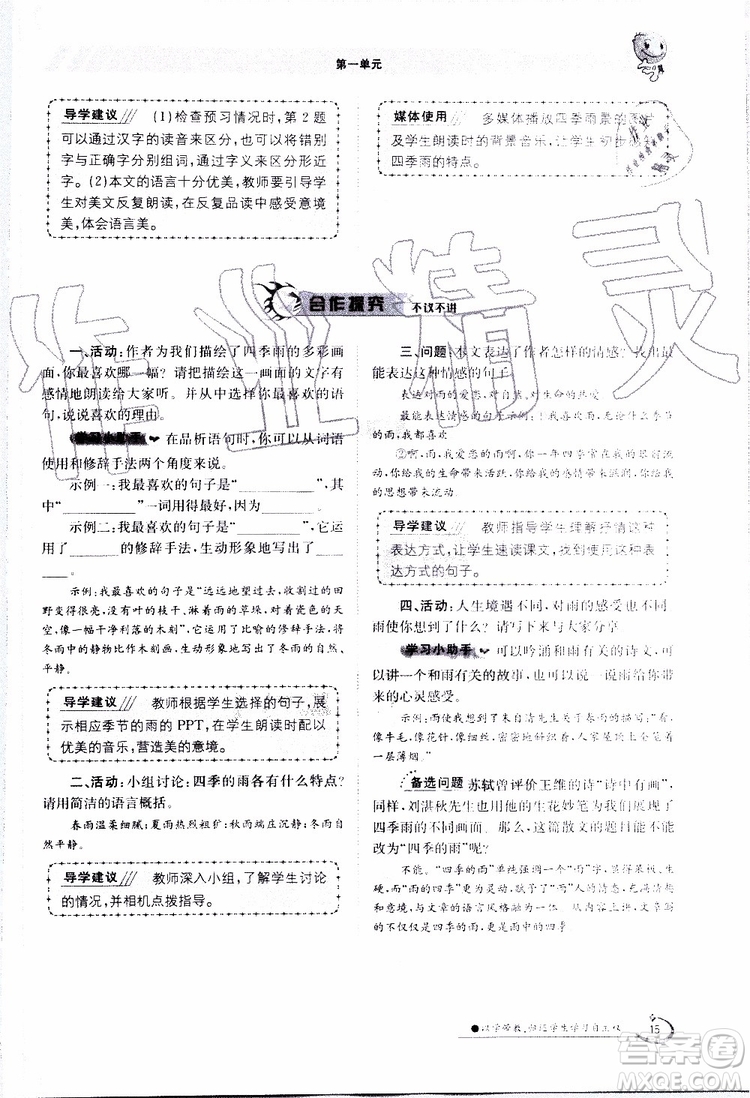 第一单元
导学建议 (1)检查预习情况时,第2题
可以通过汉字的读音来区分,也可以将错别
字与正确字分别组词,通过字义来区分形近
字。(2)本文的语言十分优美,教师要引导学
生对美文反复朗读,在反复品读中感受意境
美,体会语言美。
合作探究 不议不讲
一、活动:作者为我们描绘了四季雨的多彩画
面,你最喜欢哪一幅?请把描绘画面的文字有
感情地朗读给大家听。并从中选择你最喜欢的语
句,说说喜欢的理由。
学习小助手 在品析语句时,你可以从词语
使用和修辞手法两个角度来说。
示例一:我最喜欢的句子是“________”,其
中“________”一词用得最好,因为________。
示例二:我最喜欢的句子是“________”,它运
用了________的修辞手法,生动形象地写出了
________。
示例:我最喜欢的句子是“远远地望出去,收割过的田
野变得很亮,没有叶的枝干,淋着雨的草垛,对着瓷色的天
空,像一幅干净利落的木刻”,它运用了比喻的修辞手法,将
冬雨中的静物比作木刻,生动形象地写出了冬雨的自然、
平静。
导学建议 教师根据学生选择的句子,展
示相应季节的雨的PPT,在学生朗读时配以
优美的音乐,营造美的意境。
二、活动:小组讨论:四季的雨各有什么特点?
请用简洁的语言概括。
春雨温柔细腻;夏雨热烈粗犷;秋雨端庄沉静;冬雨自然平静。
导学建议 教师深入小组,了解学生讨论
的情况,并相机点拨指导。
媒体使用 多媒体播放四季雨景的图片
及学生朗读时的背景音乐,让学生初步感受
四季雨的特点。
三、问题:本文表达了作者怎样的情感?找出最
能表达这种情感的句子。
表达了作者对雨的爱恋,对自然、对生命的热爱。
最能表达情感的句子示例:①啊,雨,我爱恋的雨啊
②啊,雨,我的爱恋的雨啊,你一年四季常在我的眼前流动,
你给我的生命带来活跃,你给我的感情带来滋润,你给我
的思想带来流动。
导学建议 教师指导学生理解抒情这种
表达方式,让学生速读课文,找到使用这种
表达方式的句子。
四、活动:人生境遇不同,对雨的感受也不同,
听雨使你想到了什么?请写下来与大家分享。
学习小助手 可以吟诵和雨有关的诗文,可
以讲一个和雨有关的故事,也可以写一写雨带来
的心灵感受。
示例:听雨,我想到了朱自清先生关于春雨的描写:“看,
像牛毛,像花针,像细丝,密密地斜织着,人家屋顶上全笼着
一层薄烟。”
备选问题 苏轼曾评价王维的诗“诗中有画”,
同样,刘湛秋先生的生花妙笔为我们展现了
四季雨的不同画面。那么,这篇散文的题目能不能
改为“四季的雨”?为什么?
不能。“四季的雨”单纯强调了季节的雨,显得呆板、生
硬,而“雨的四季”赋予了“雨”人的情态,更富有诗情画意
和意境,与文章的语言风格融为一体。从内容上讲,文章写
的不仅仅是四季的雨,更是雨中的四季。
以学带教,归还学生学习自主权
15
作业精灵
答案卷
MXQE.COM